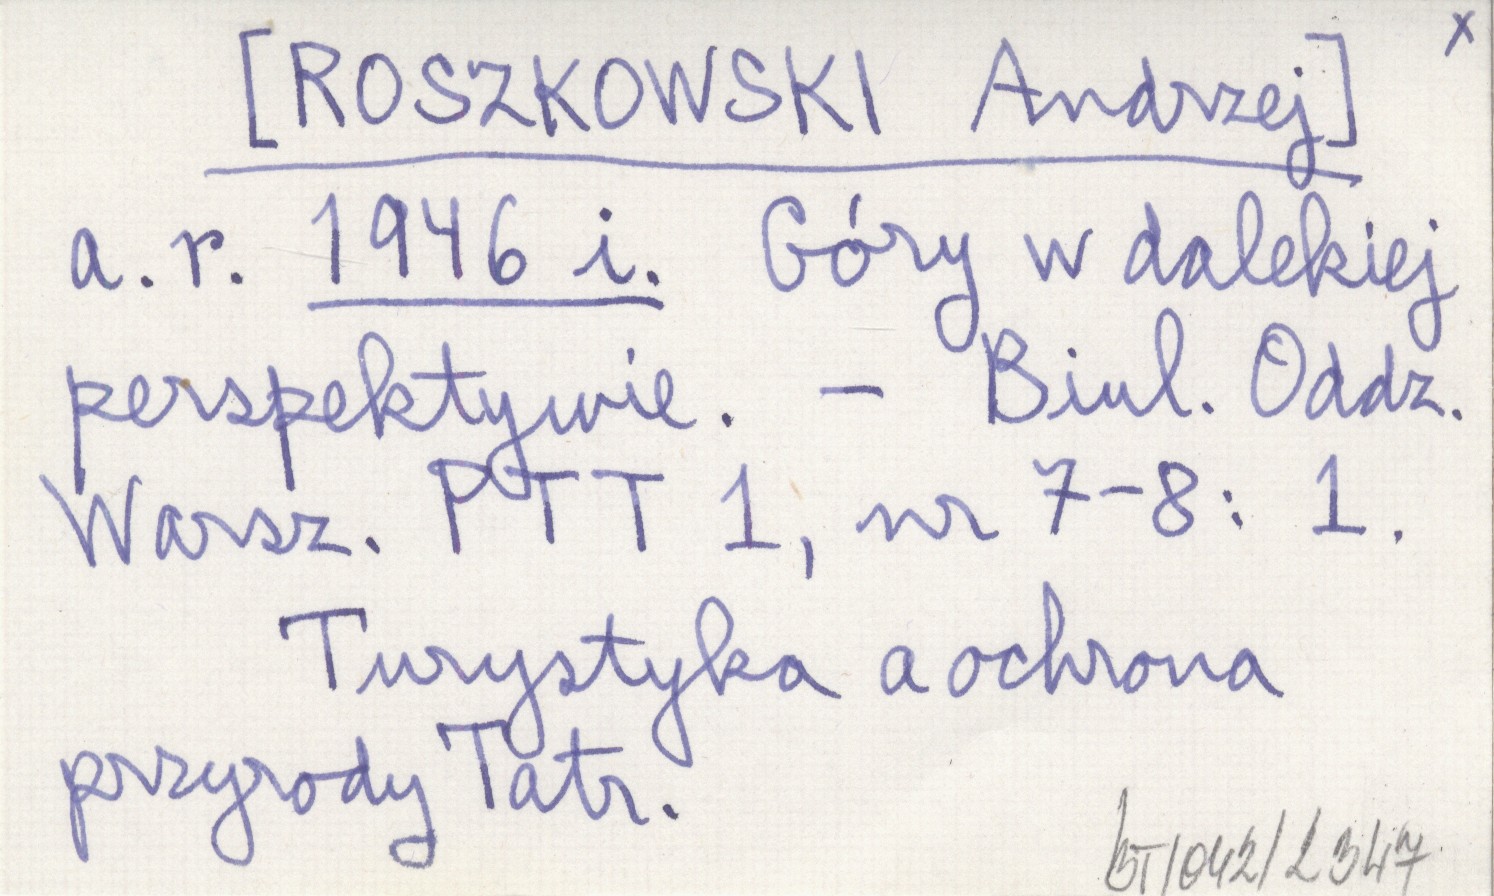 x
[ROSZKOWSKI Andrzej]
a. r. 1946 i. Góry w dalekiej
perspektywie. – Biul. Oddz.
Warsz. PTT 1, nr 7-8: 1.
Turystyka a ochrona
przyrody Tatr.
BT/042/2347